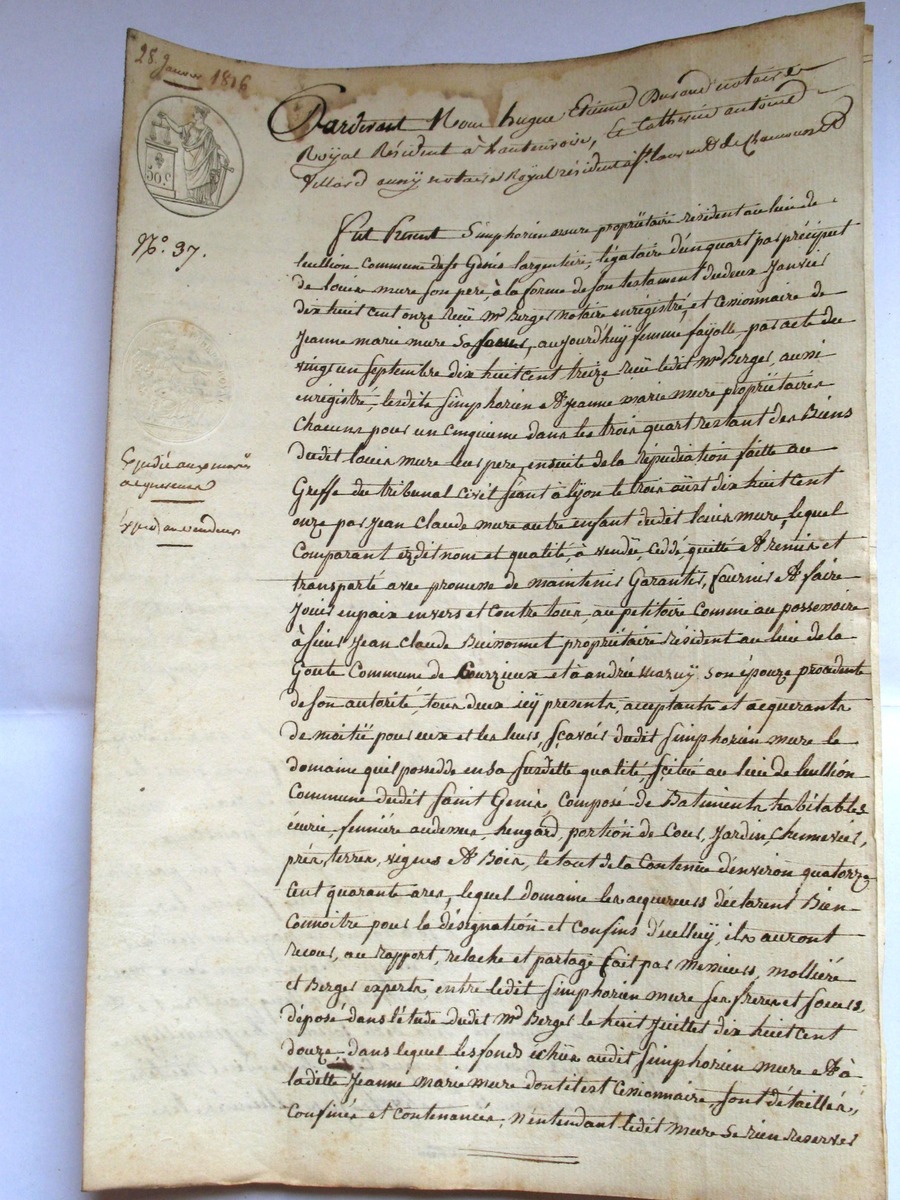 28 Janvier 1816
Pardevant Nous hugue Etienne Durand notaire
Royal Résident à hauterivoire, Et Catherin antoine
Villard aussy notaire Royal résident à St laurent de Chamousset
N.o 37.
fut Present Simphorien mure propriétaire résident au lieu de
leullion commune de St Génis l'argentiere, légataire d'un quart par préciput
de louis mure son pere, à la forme de son testament du deux Janvier
dix huit cent onze reçu Me Berger notaire enrégistré, et Cessionnaire de
Jeanne marie mure sa soeur, aujourd'huy femme fayolle, par acte du
vingt un septembre dix huit cent treize reçu ledit Me Berger, aussi
enrégistré, lesdits Simphorien et Jeanne marie mure propriétaires
Chacuns pour un cinquieme dans les trois quart restant des Biens
dudit louis mure leur pere, ensuite de la répudiation faitte au
Greffe du tribunal civil séant à lyon le trois aüst dix huit cent
onze par Jean Claude mure autre enfant dudit louis mure, lequel
Comparant ezdit nom et qualité, à vendü, ceddé, quitté et remis et
transporté avec promesse de maintenir Garantir, fournir et faire
Jouir en paix envers et contre tous, au petitoire comme au possessoire
à sieur Jean Claude Buissonnet propriétaire résident au lieu de la
Goute Commune de Courzieux et à andrée marny son épouze procedente
de son autorité, tous deux icy presents, acceptants et acquerants
de moitié pour eux et les leurs, sçavoir dudit Simphorien mure le
domaine qu'il possedde en sa susditte qualité, scitué au lieu de leullion
Commune dudit Saint Genis, composé de Batiments habitables
écurie, fenniére audessus, hengard, portion de Cour, Jardin, Chennevier,
prés, terres, vignes et Bois, le tout de la Contenüe d'environ quatorze
Cent quarante ares, lequel domaine les acquereurs déclarent Bien
Connoitre pour la désignation et confins d'icelluy, ils auront
recour, au rapport, relache et partage fait par Messieurs, mollière
et Berger experts, entre ledit Simphorien mure ses freres et soeurs,
déposé dans l'étude dudit Me Berger le huit Juillet dix huit cent
douze, dans lequel les fonds échus audit Simphorien mure et à
laditte Jeanne marie mure dont il est Cessionnaire, sont détaillés,
Confinés et contenancés, n'entendant ledit mure se rien reserver
Expédié aux mariés
acquereurs
Expéd au vendeur